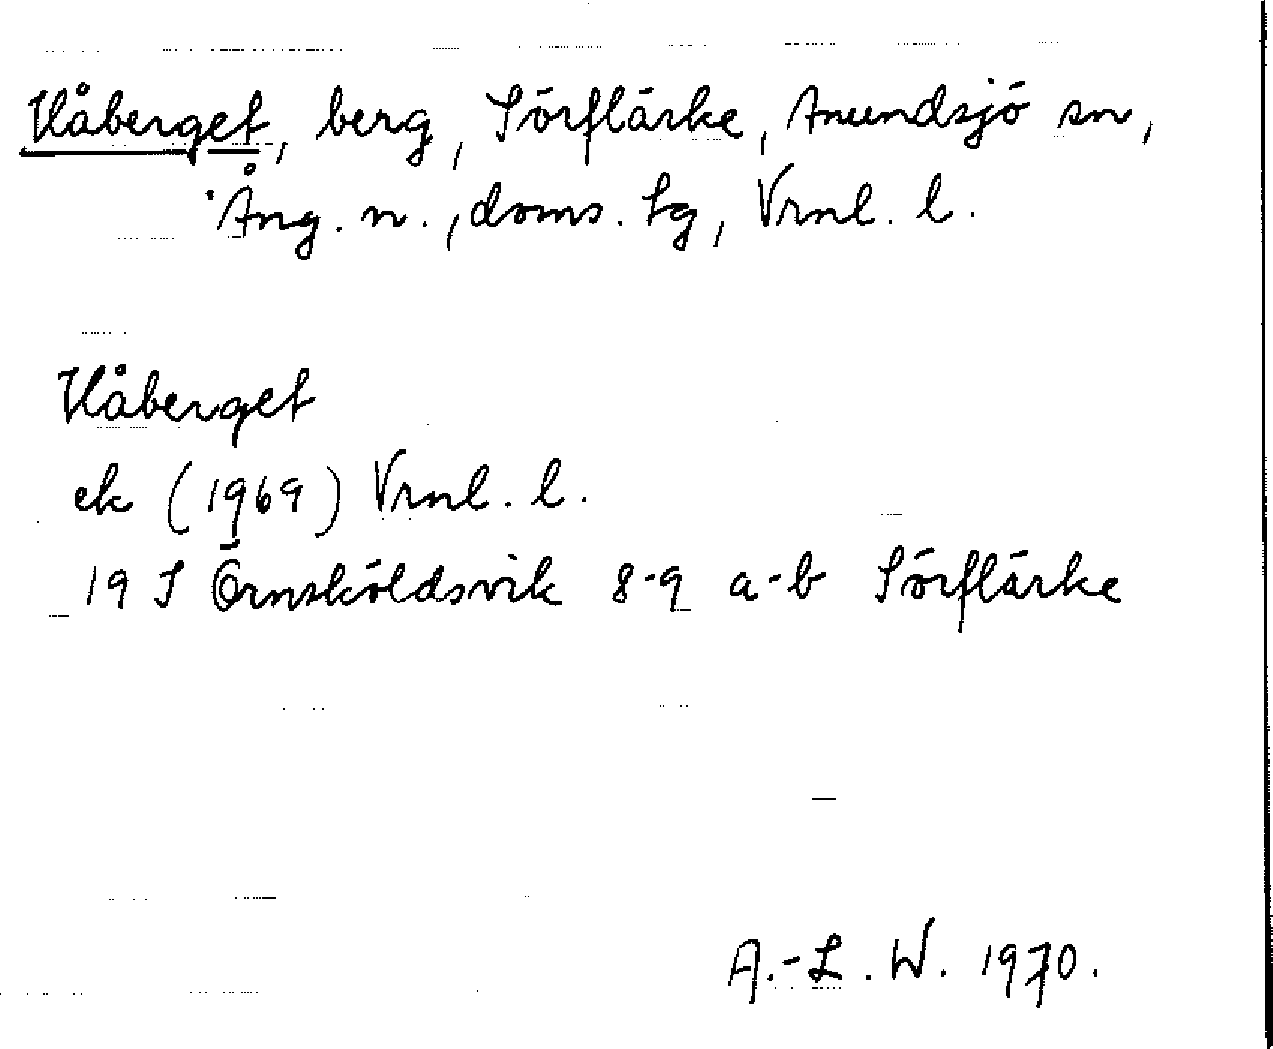 Håberget, berg, Sörflärke, Anundsjö sn,
Ång. n., doms. sg, Vrnl. l.
Håberget
ek (1969) Vrnl. l.
19 J Örnsköldsvik 8-9 a-b Sörflärke
A.-L. W. 1970.